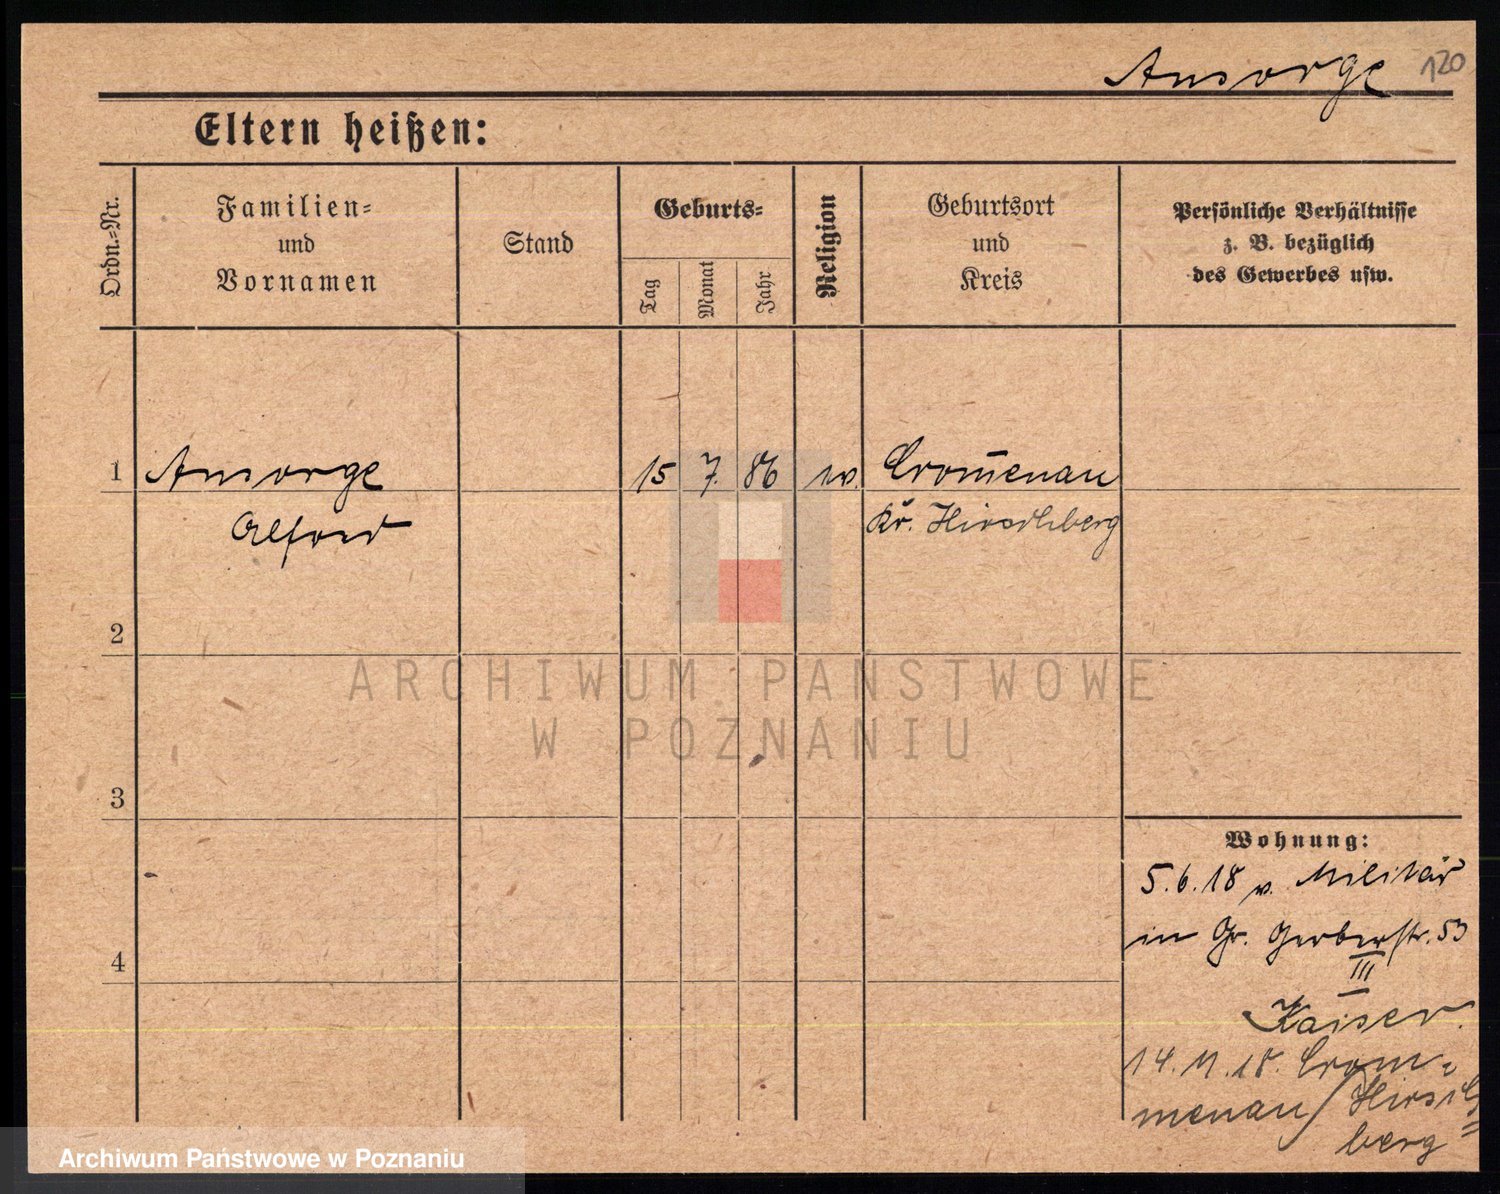 Ansorge 120
Eltern heißen:
Ordn.=Nr.
Familien=
und
Vornamen
Stand
Geburts=
Tag
Monat
Jahr
Religion
Geburtsort
und
Kreis
Persönliche Verhältnisse
z. B. bezüglich
des Gewerbes usw.
1 Ansorge 15 7. 86 ev. Crom̅enau
Alfred Kr. Hirschberg
2
ARCHIWUM PAŃSTWOWE
W POZNANIU
3
Wohnung:
5.6.18 v. Militär
in Gr. Gerberstr. 53
III
4
Kaiser.
14.11.18. Crom=
menau/Hirsch=
berg
Archiwum Państwowe w Poznaniu